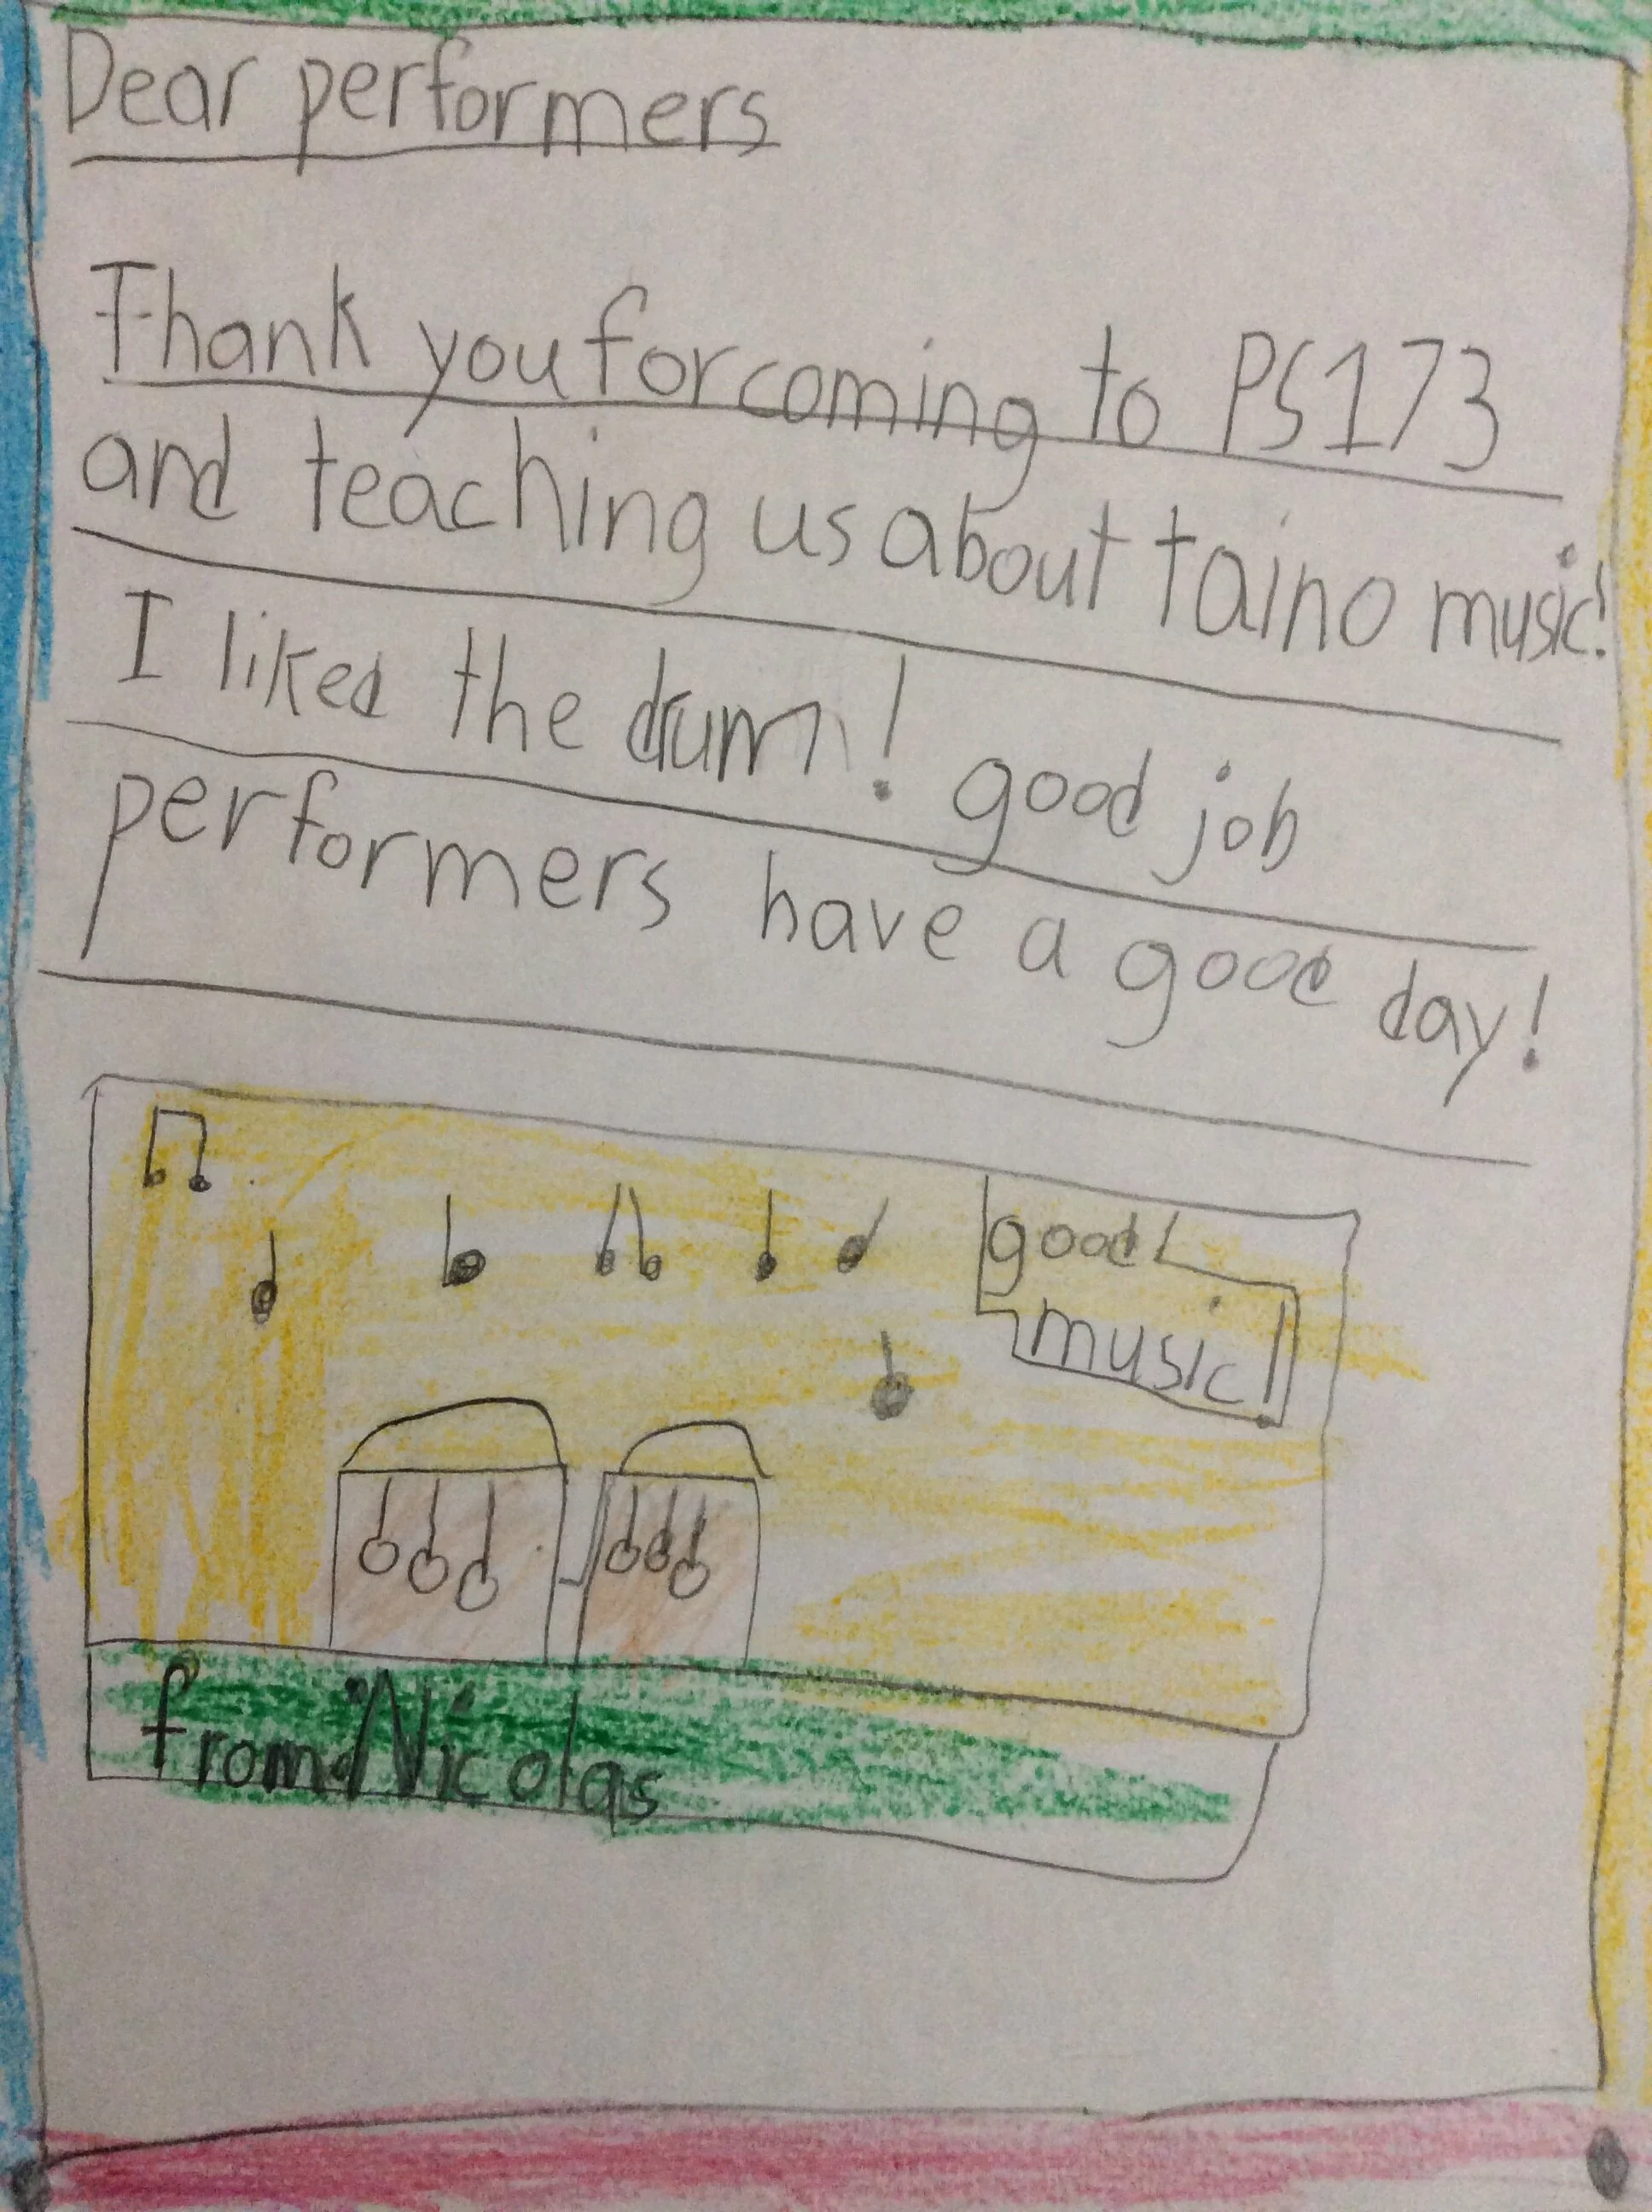 Dear performers
Thank you for coming to PS173
and teaching us about taino music!
I liked the drum! good job
performers have a good day!
good
music!
from Nicolas